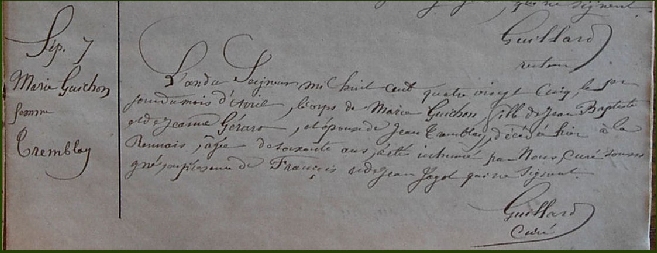 qui ne signent.
Guillard
recteur
Sep. 7
Marie Guichon
femme
Tremblay
L'an du Seigneur, mil huit cent quatre vingt cinq le 1er
jour du mois d'Avril, le corps de Marie Guichon fille de Jean Baptiste
et de Jeanne Gérard, et épouse de Jean Tremblay, décédée hier à la
âgée de soixante ans, a été inhumé par Nous Curé soussi
gné, en présence de François et de Jean Jagot qui ne signent.
Guillard
Curé